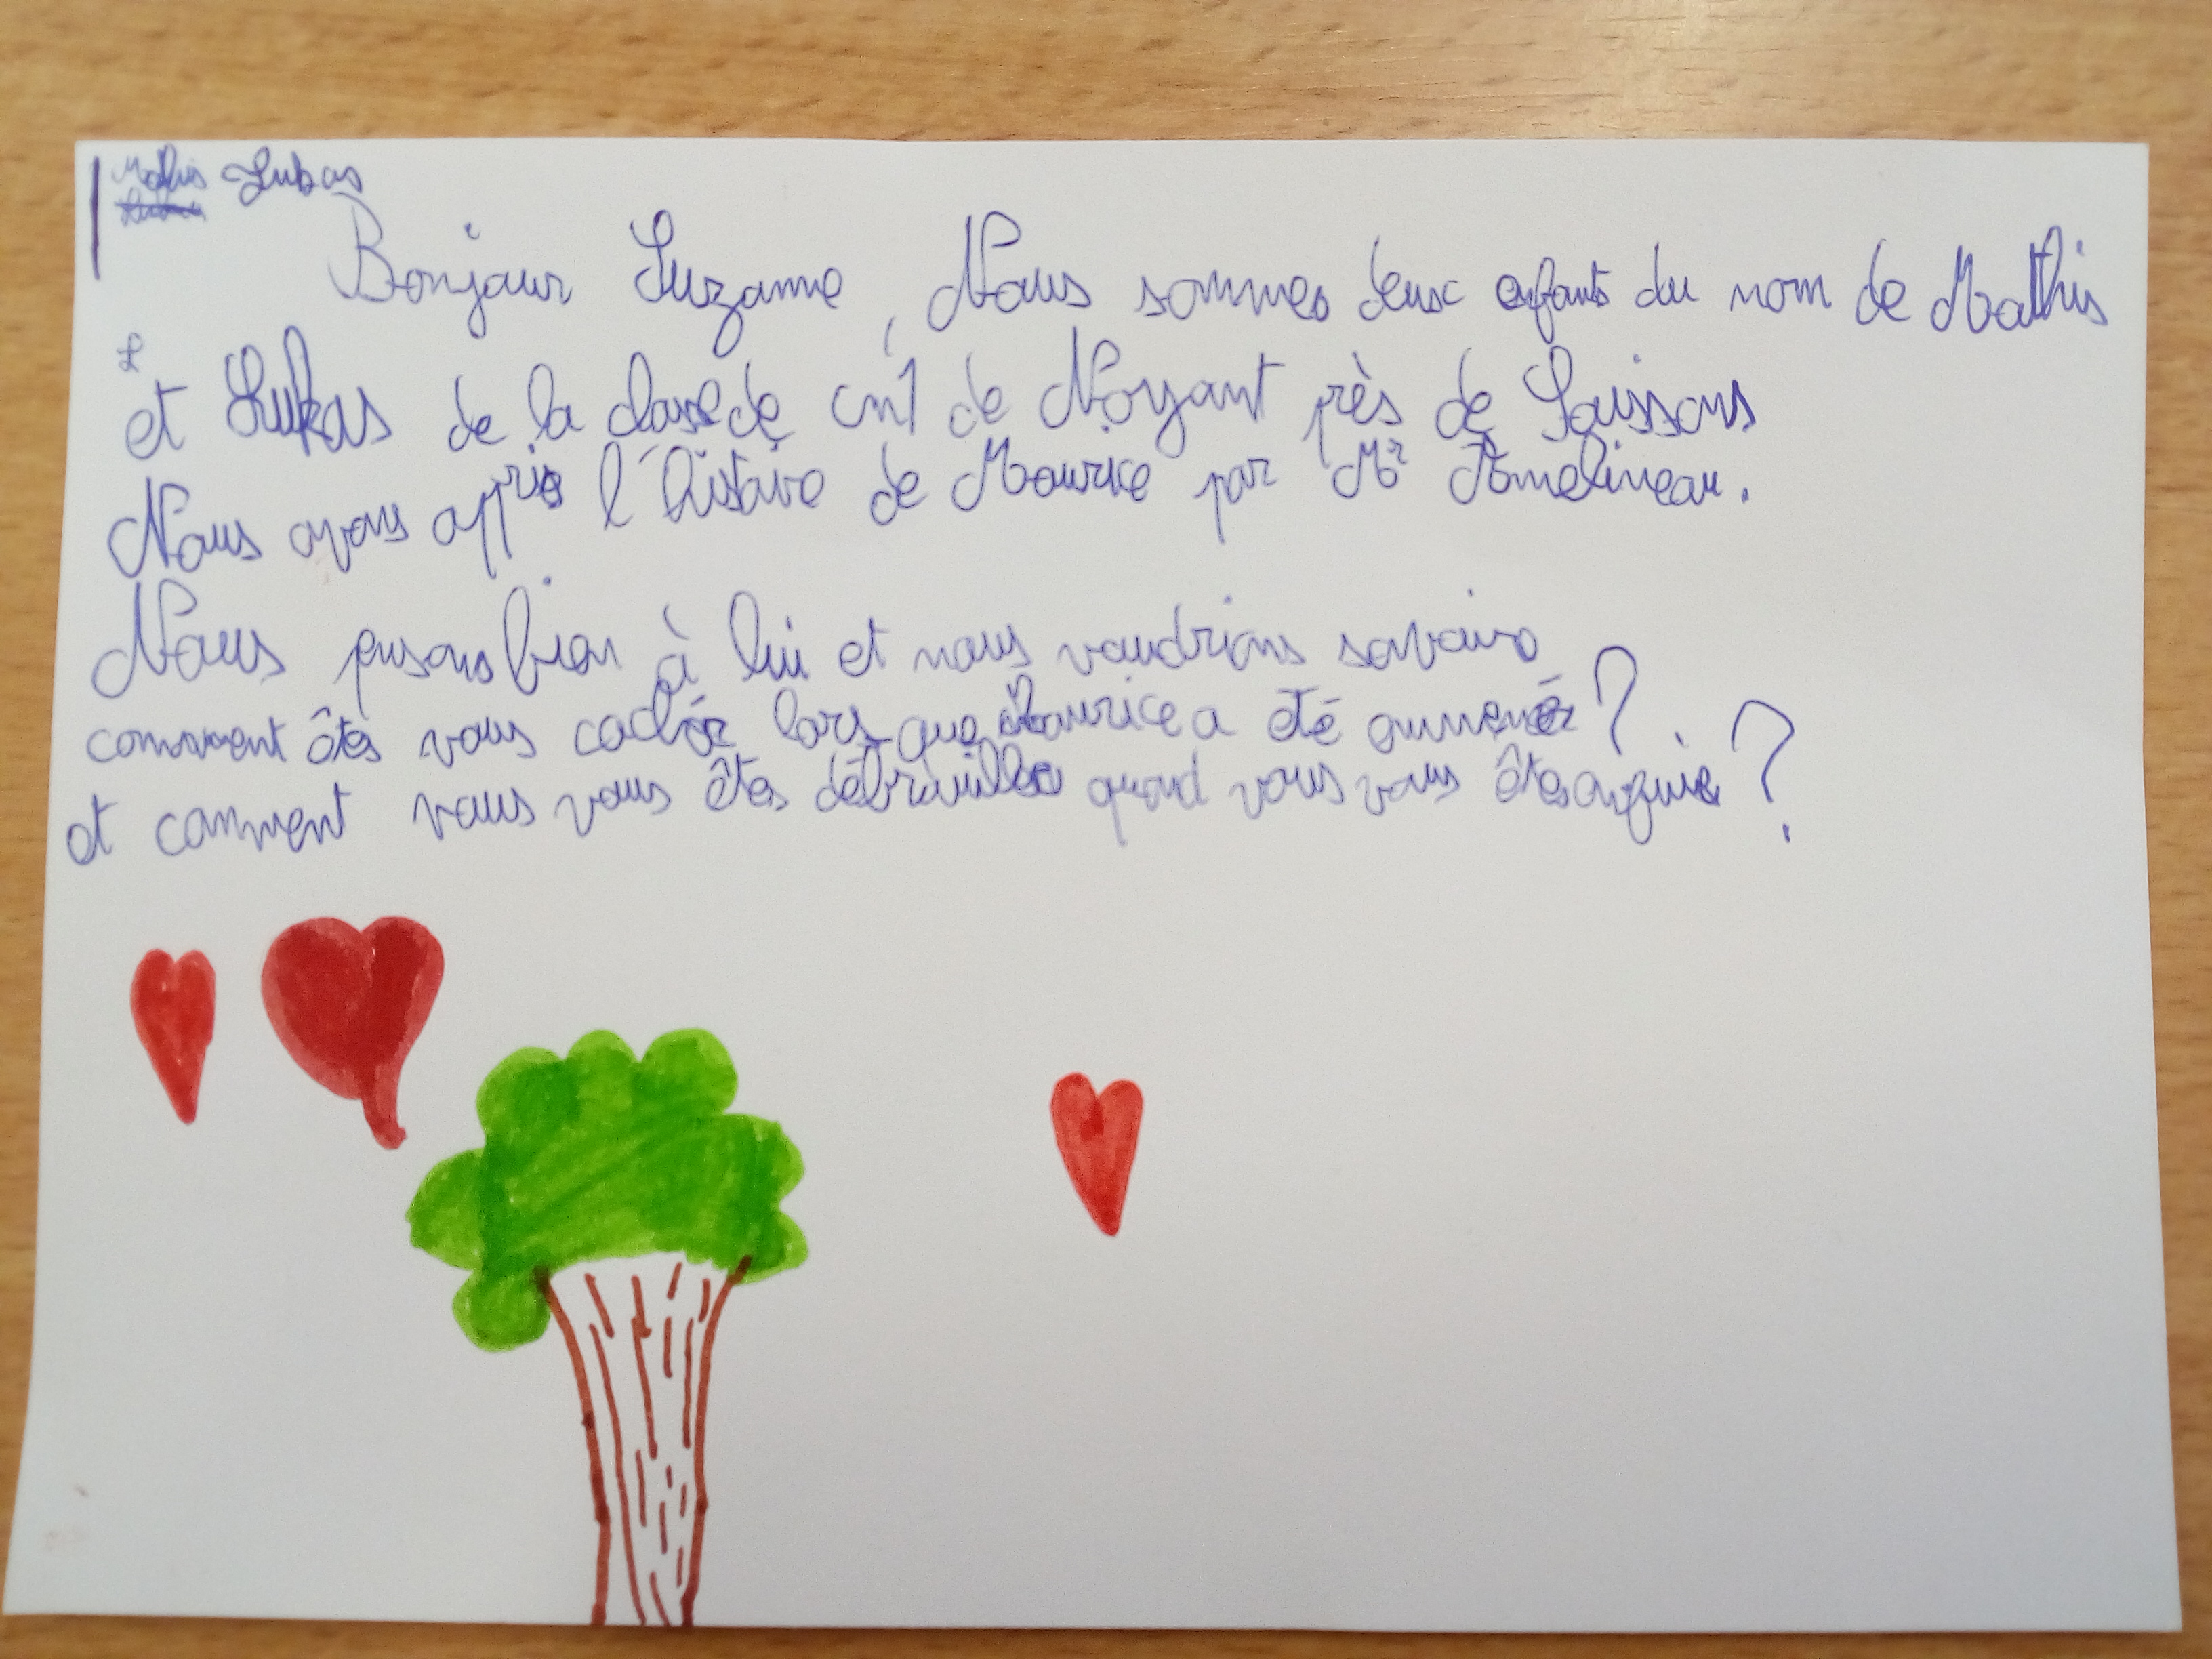 Mathis Lukas
Bonjour Suzanne, Nous sommes deux enfants du nom de Mathis
L
et Lukas de la classe de cm1 de Noyant près de Soissons
Nous avons appris l'histoire de Maurice par Mr
Nous pensons bien à lui et nous voudrions savoir
comment êtes vous caché lors que Maurice a été emmené ?
et comment vous vous êtes débrouillé quand vous vous êtes enfuie ?